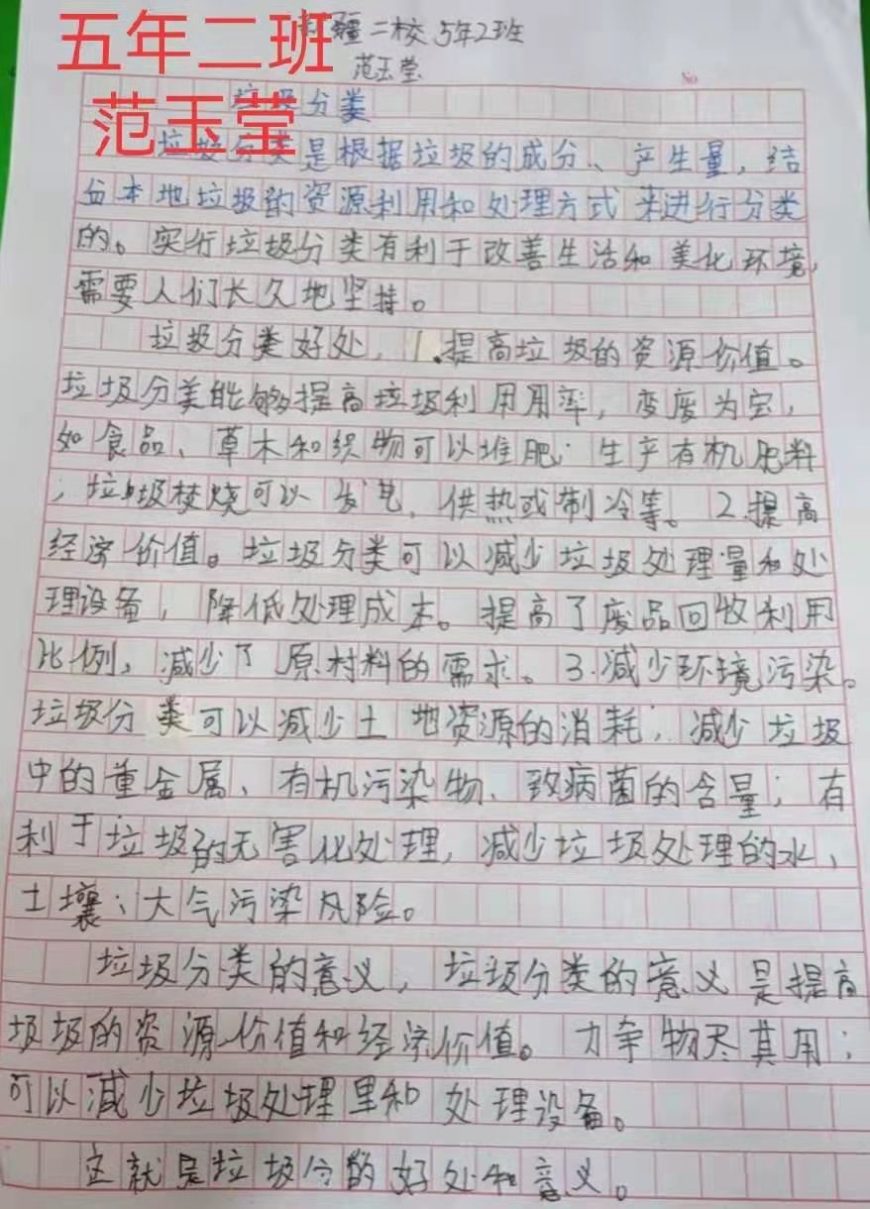 五年二班
范玉莹
新疆二校5年2班
范玉莹
No
垃圾分类
垃圾分类是根据垃圾的成分、产生量,结
合本地垃圾的资源利用和处理方式来进行分类
的。实行垃圾分类有利于改善生活和美化环境,
需要人们长久地坚持。
垃圾分类好处,1.提高垃圾的资源价值。
垃圾分类能够提高垃圾利用用率,变废为宝,
如食品、草木和织物可以堆肥;生产有机肥料
;垃圾焚烧可以发电,供热或制冷等。2.提高
经济价值。垃圾分类可以减少垃圾处理量和处
理设备,降低处理成本。提高了废品回收利用
比例,减少了原材料的需求。3.减少环境污染。
垃圾份类可以减少土地资源的消耗;减少垃圾
中的重金属、有机污染物、致病菌的含量;有
利于垃圾的无害化处理,减少垃圾处理的水、
土壤、大气污染风险。
垃圾分类的意义,垃圾分类的意义是提高
圾圾的资源价值和经济价值。力争物尽其用;
可以减少垃圾处理里和处理设备。
这就是垃圾分的好处和意义。